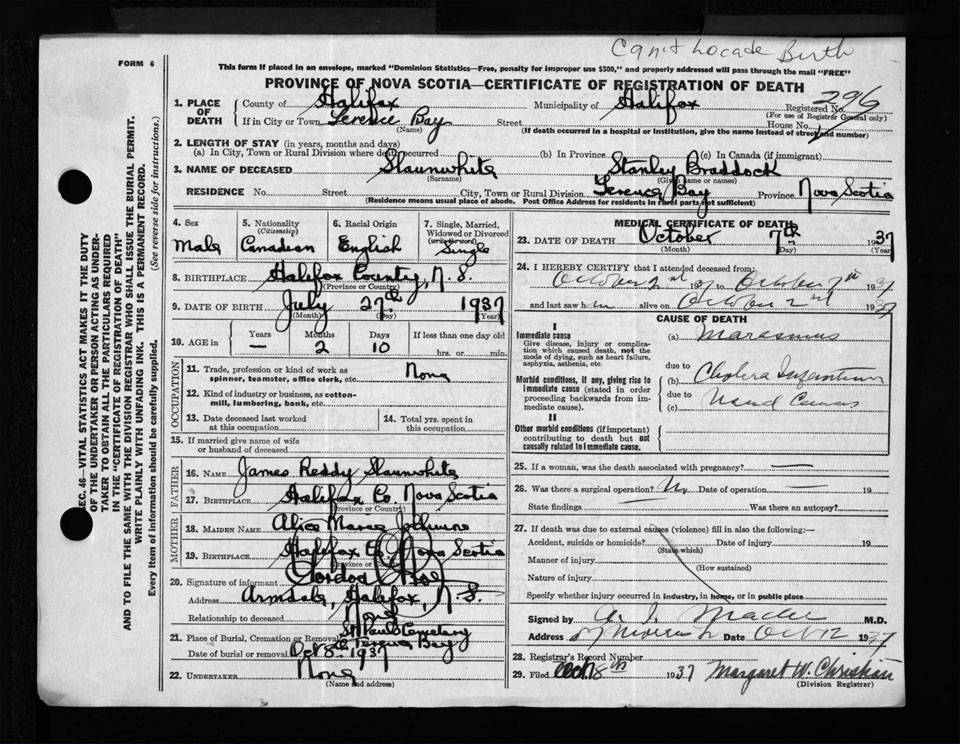 Can't Locade Birth
FORM 6
This form if placed in an envelope, marked "Dominion Statistics—Free, penalty for improper use $300," and properly addressed will pass through the mail "FREE"
PROVINCE OF NOVA SCOTIA—CERTIFICATE OF REGISTRATION OF DEATH
1. PLACE OF DEATH
County of Halifax Municipality of Halifax Registered No. 296
(For use of Registrar General only)
If in City or Town Terence Bay Street House No.
(Name) (If death occurred in a hospital or institution, give the name instead of street and number)
2. LENGTH OF STAY (in years, months and days)
(a) In City, Town or Rural Division where death occurred (b) In Province (c) In Canada (if immigrant)
3. NAME OF DECEASED Slaunwhite Stanley Braddock
(Surname) (Given name or names)
RESIDENCE No. Street City, Town or Rural Division Terence Bay Province Nova Scotia
(Residence means usual place of abode. Post Office Address for residents in rural parts not sufficient)
4. Sex Male
5. Nationality (Citizenship) Canadian
6. Racial Origin English
7. Single, Married, Widowed or Divorced (write the word) Single
8. BIRTHPLACE Halifax County, N. S.
(Province or Country)
9. DATE OF BIRTH July 27th 1937
(Month) (Day) (Year)
10. AGE in Years — Months 2 Days 10 If less than one day old
hrs. or min.
OCCUPATION
11. Trade, profession or kind of work as spinner, teamster, office clerk, etc. None
12. Kind of industry or business, as cotton-mill, lumbering, bank, etc.
13. Date deceased last worked at this occupation
14. Total yrs. spent in this occupation
15. If married give name of wife or husband of deceased
FATHER
16. NAME James Reddy Slaunwhite
17. BIRTHPLACE Halifax Co. Nova Scotia
(Province or Country)
MOTHER
18. MAIDEN NAME Alice Maree
19. BIRTHPLACE Halifax Co. Nova Scotia
(Province or Country)
20. Signature of informant Gordon
Address Armdale, Halifax, N. S.
Relationship to deceased None
21. Place of Burial, Cremation or Removal St Pauls Cemetary
Terence Bay
Date of burial or removal Oct 8th 1937
22. UNDERTAKER None
(Name and address)
MEDICAL CERTIFICATE OF DEATH
23. DATE OF DEATH October 7th 1937
(Month) (Year)
24. I HEREBY CERTIFY that I attended deceased from:
October 2nd 1937 to October 7th 1937
and last saw h im alive on October 2nd 1937
CAUSE OF DEATH
I
Immediate cause
Give disease, injury or complication which caused death, not the mode of dying, such as heart failure, asphyxia, asthenia, etc.
(a) Marasmus
due to
Morbid conditions, if any, giving rise to immediate cause (stated in order proceeding backwards from immediate cause).
(b) Cholera Infantum
due to
(c)
II
Other morbid conditions (if important) contributing to death but not causally related to immediate cause.
25. If a woman, was the death associated with pregnancy? —
26. Was there a surgical operation? No Date of operation — 19
State findings Was there an autopsy?
27. If death was due to external causes (violence) fill in also the following:—
Accident, suicide or homicide? Date of injury 19
(State which)
Manner of injury
(How sustained)
Nature of injury
Specify whether injury occurred in industry, in home, or in public place
Signed by M.D.
Address Date Oct 12 1937
28. Registrar's Record Number
29. Filed Oct 8th 1937 Margaret W. Christian
(Division Registrar)
SEC. 46—VITAL STATISTICS ACT MAKES IT THE DUTY
OF THE UNDERTAKER OR PERSON ACTING AS UNDER-
TAKER TO OBTAIN ALL THE PARTICULARS REQUIRED
IN THE "CERTIFICATE OF REGISTRATION OF DEATH"
AND TO FILE THE SAME WITH THE DIVISION REGISTRAR WHO SHALL ISSUE THE BURIAL PERMIT.
WRITE PLAINLY WITH UNFADING INK. THIS IS A PERMANENT RECORD.
Every item of information should be carefully supplied. (See reverse side for instructions.)